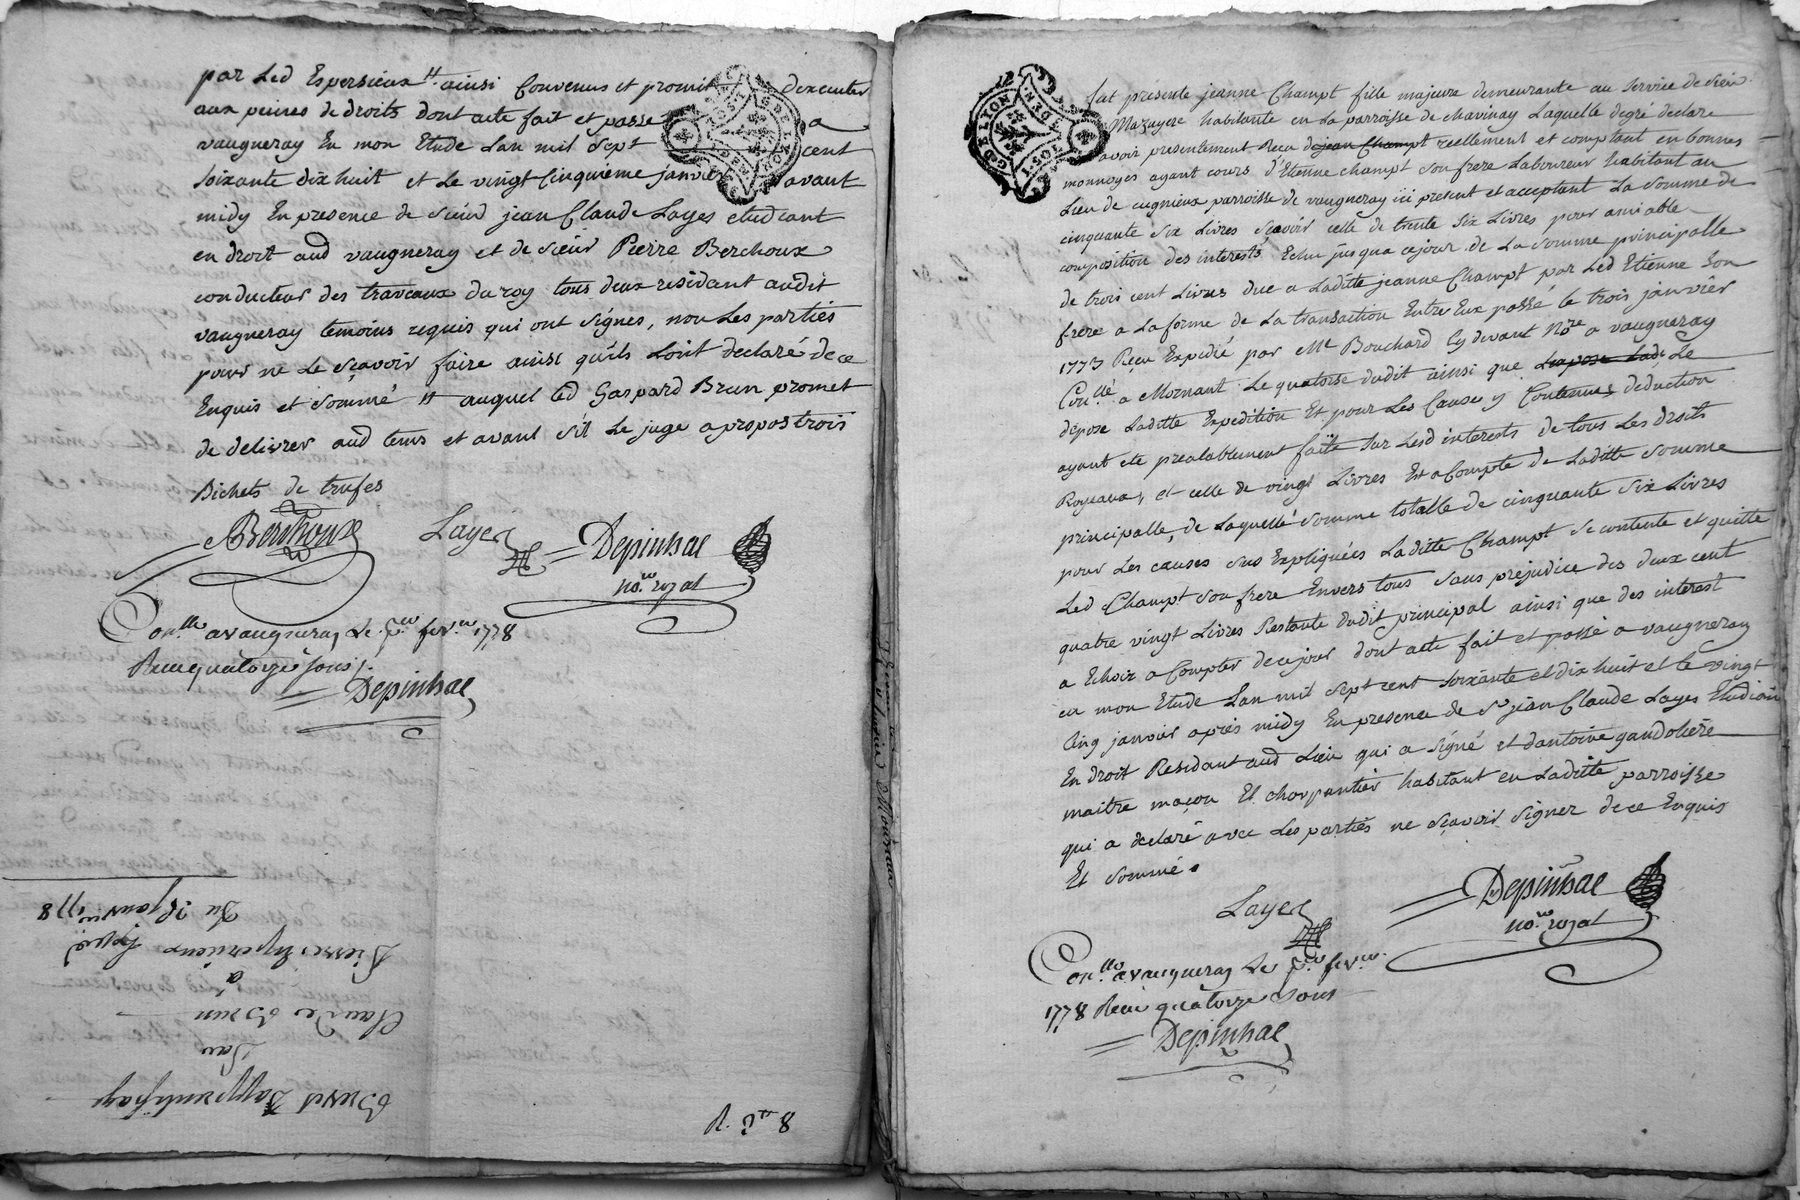 par Led Espersieux ainsi Convenus et promit dexecuter
aux peines de droits dont acte fait et passé a
vaugneray En mon Etude Lan mil Sept cent
soixante dix huit et Le vingt Cinquieme janvier avant
midy En presence de sieur jean Claude Layes etudiant
en droit aud vaugneray et de sieur Pierre Berchoux
conducteur des travaux du roy tous deux residant audit
vaugneray temoins requis qui ont signes, non Les parties
pour ne Le sçavoir faire ainsi quils Lont declaré de ce
Enquis et sommé auquel led Gaspard Brun promet
de delivrer aud tems et avant s'il Le juge apropos trois
Bichets de trufes
Berchoux Layes Depinhac
no.re royal
Con.llé a vaugneray Le p.er fev.er 1778
Recu quatorze sous
Depinhac
Brevet Dapprentissage
par
Claude Brun
a
Pierre Espersieux
Du 25 janvier 1778
R. 8
G. DE LYON
fut presente jeanne Champt fille majeure demeurante au service de sieur
Mazuyere habitante en La parroisse de chavinay Laquelle degré declare
avoir presentement Recu de jean Champt reellement et comptant en bonnes
monnoyes ayant cours d'Etienne champt son frere Laboureur habitant au
Lieu de cugnieux parroisse de vaugneray ici present et acceptant La somme de
cinquante six Livres sçavoir celle de trente six Livres pour amiable
composition des interests Echu jusqua cejour de La somme principalle
de trois cent Livres due a Laditte jeanne Champt par Led Etienne son
frere a La forme de La transaction Entre Eux passé le trois janvier
1773 Recu Expedié par Me Bouchard Cy devant No.re a vaugneray
Con.llé a Mornant Le quatorse dudit ainsi que Le
depose Laditte Expedition Et pour Les Causes y Contenues deduction
ayant eté prealablement faite sur Lesd interests de tous Les droits
Royeaux, et celle de vingt Livres Et a Compte de Laditte somme
principalle, de Laquelle somme totalle de cinquante six Livres
pour Les causes sus Expliquées Laditte Champt se contente et quitte
Led Champt son frere Envers tous sans prejudice des deux cent
quatre vingt Livres Restante dudit principal ainsi que des interest
a Echoir a Compter decejour dont acte fait et passé a vaugneray
en mon Etude Lan mil sept cent soixante et dix huit et le vingt
Cinq janvier après midy En presence de Sr jean Claude Layes Etudiant
En droit Residant aud Lieu qui a signé et dantoine gandoliere
maitre maçon Et charpentier habitant en Laditte parroisse
qui a declaré avec Les parties ne sçavoir signer de ce Enquis
Et sommé.
Layes Depinhac
no.re royal
Con.llé a vaugneray Le p.er fev.er
1778 Recu quatorze sous
Depinhac